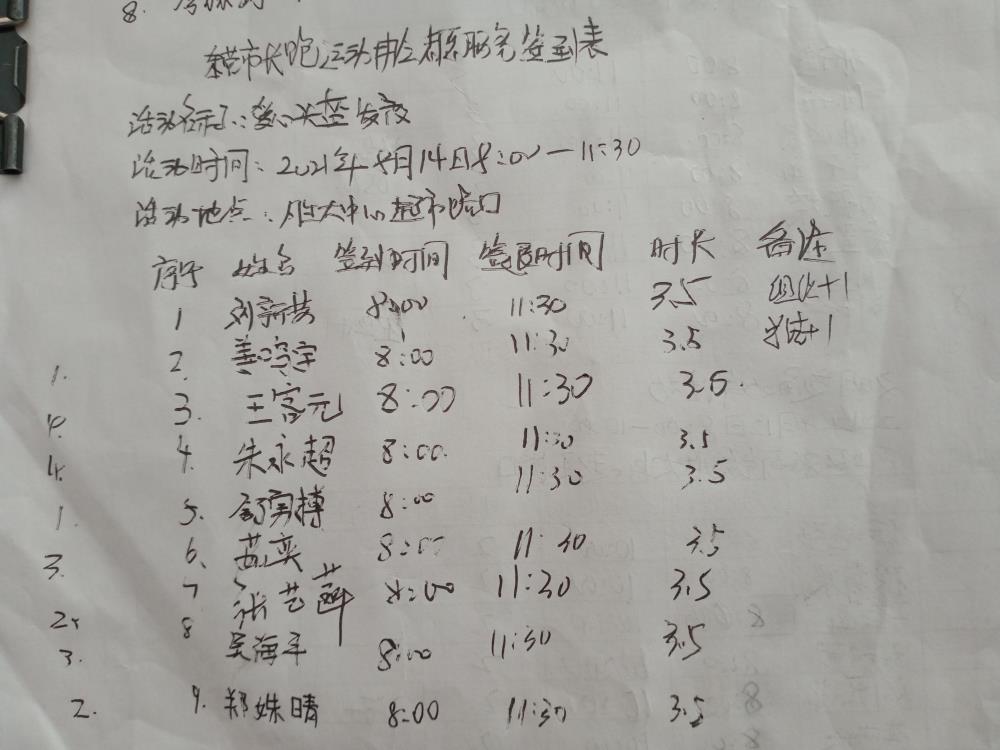 市长跑运动协会志愿服务签到表
活动名称:爱心
活动时间:2021年8月14日8:00—11:30
活动地点:恒大中心超市路口
序号 姓名 签到时间 签退时间 时长 备注
1 刘新 8:00 11:30 3.5 组织+1
2. 姜 宇 8:00 11:30 3.5 +1
1.
3. 王 元 8:00 11:30 3.5
4.
4. 朱永超 8:00 11:30 3.5
4.
5. 博 8:00 11:30 3.5
1.
6. 奕 8:00 11:30 3.5
3.
7 张艺 8:00 11:30 3.5
2.
8 吴海平 8:00 11:30 3.5
3.
9. 郑姝晴 8:00 11:30 3.5
2.